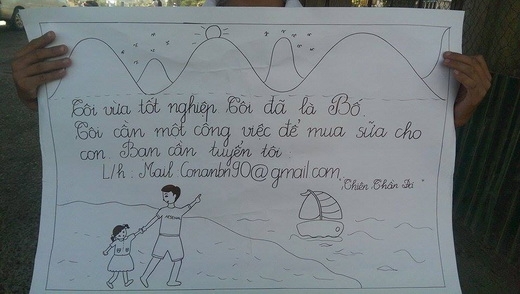 Tôi vừa tốt nghiệp Tôi đã là Bố.
Tôi cần một công việc để mua sữa cho
con. Bạn cần tuyển tôi.
L/h: Mail Conanbn90@gmail.com
"Thiên Thần Sa"